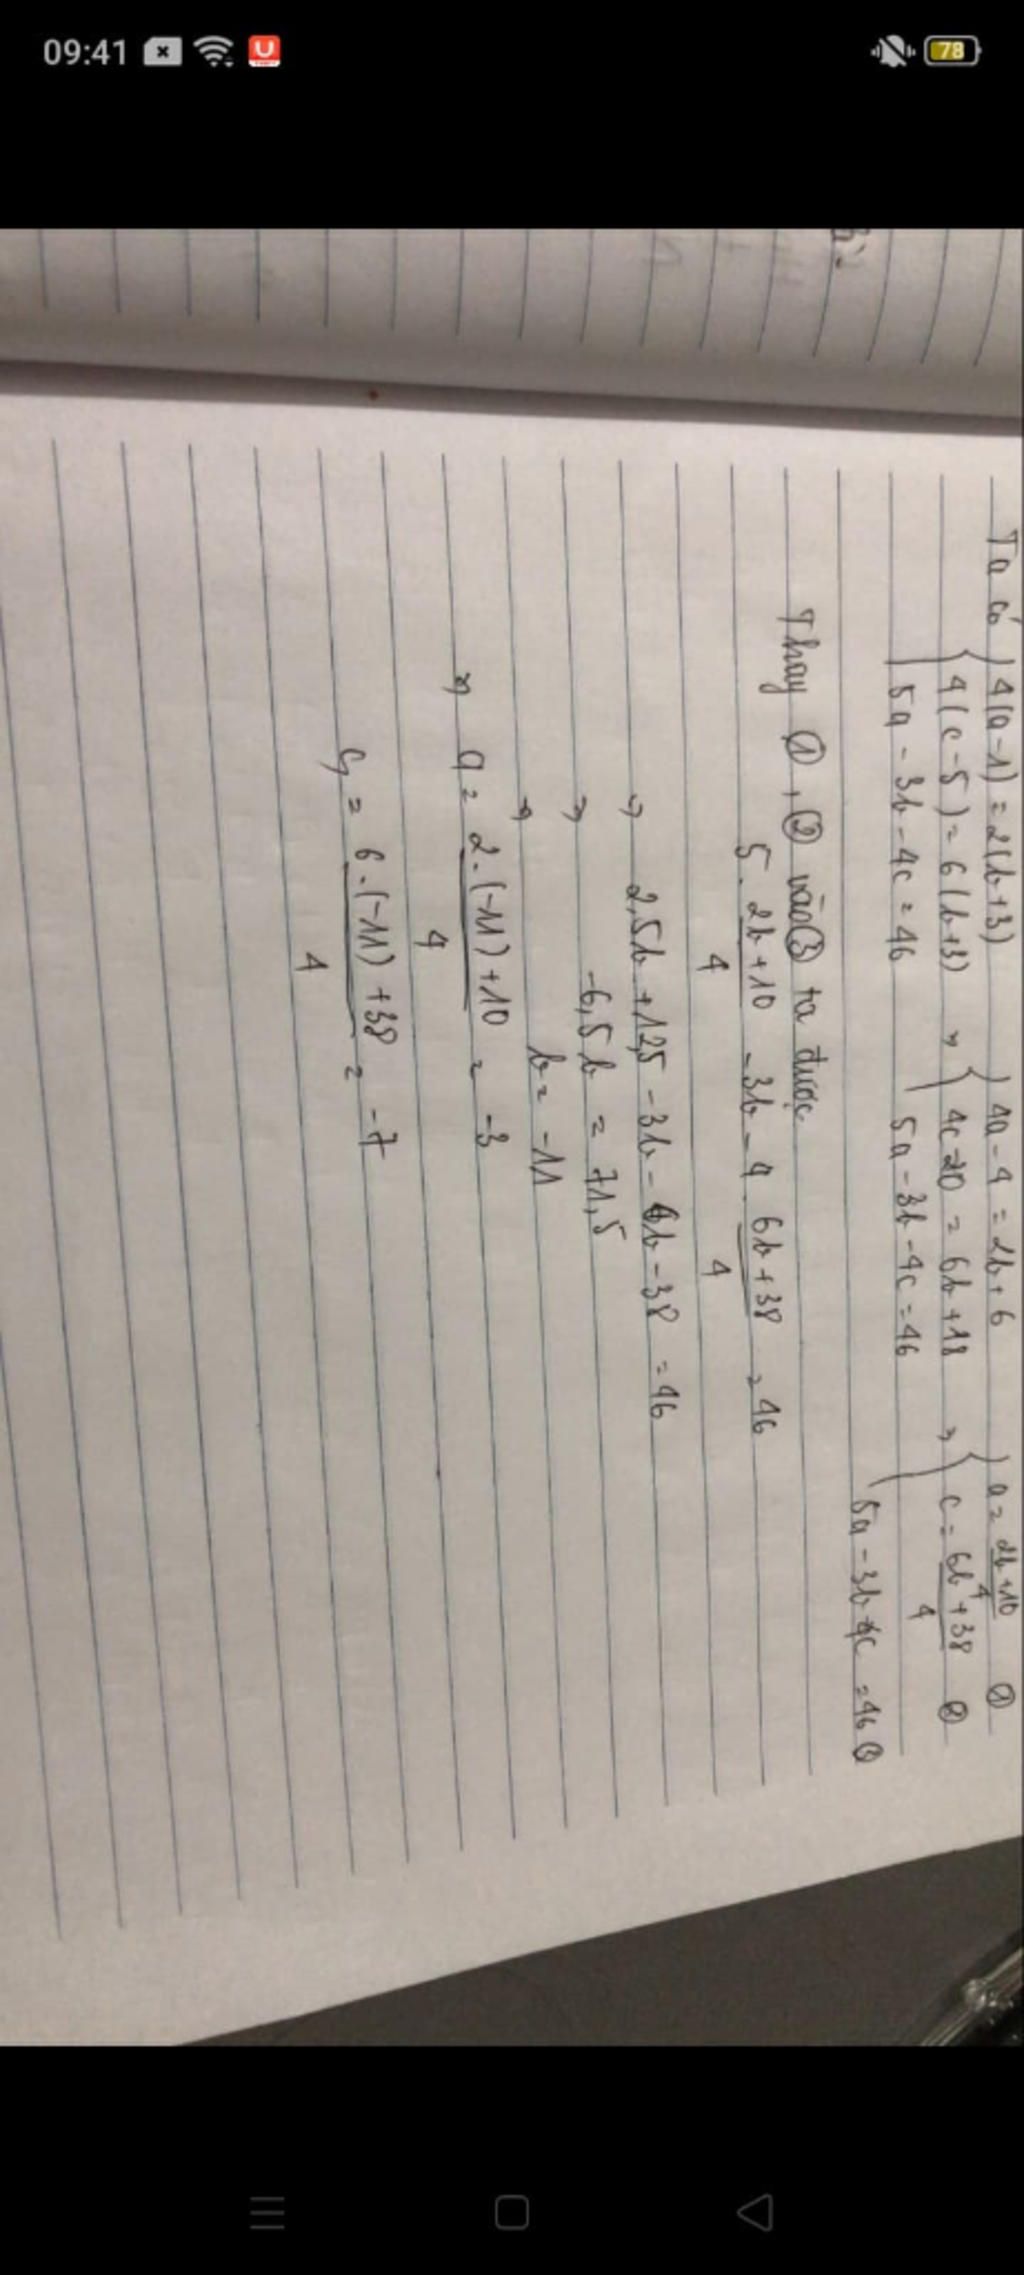 09:41
78
Ta có { 4(a-1) = 2(b+3)
4(c-5) = 6(b+3)
5a - 3b - 4c = 46
=> { 4a - 4 = 2b+6
4c-20 = 6b+18
5a - 3b - 4c = 46
=> { a = \frac{2b+10}{4} ①
c = \frac{6b+38}{4} ②
5a - 3b - 4c = 46 ③
Thay ①, ② vào ③ ta được
5 . \frac{2b+10}{4} - 3b - 4 . \frac{6b+38}{4} = 46
=> 2,5b + 12,5 - 3b - 6b - 38 = 46
=> -6,5b = 71,5
=> b = -11
=> a = \frac{2.(-11)+10}{4} = -3
c = \frac{6.(-11)+38}{4} = -7